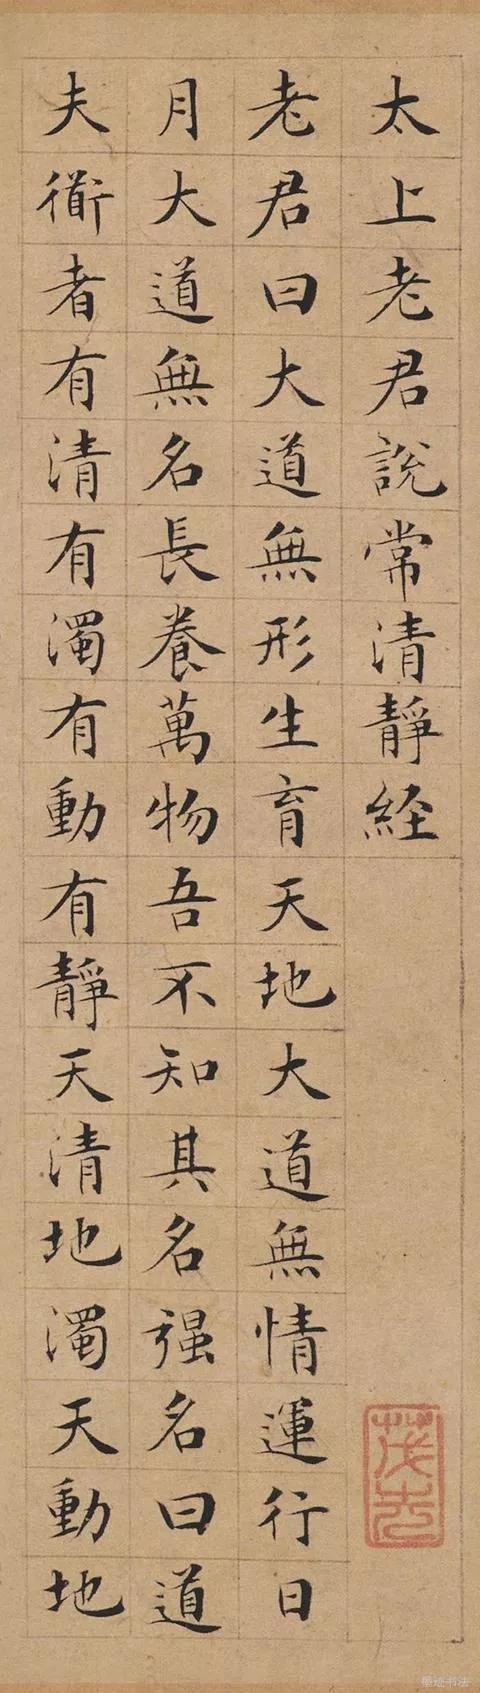 太上老君說常清靜經
老君曰大道無形生育天地大道無情運行日
月大道無名長養萬物吾不知其名强名曰道
夫衜者有清有濁有動有靜天清地濁天動地
茂先
墨迹书法